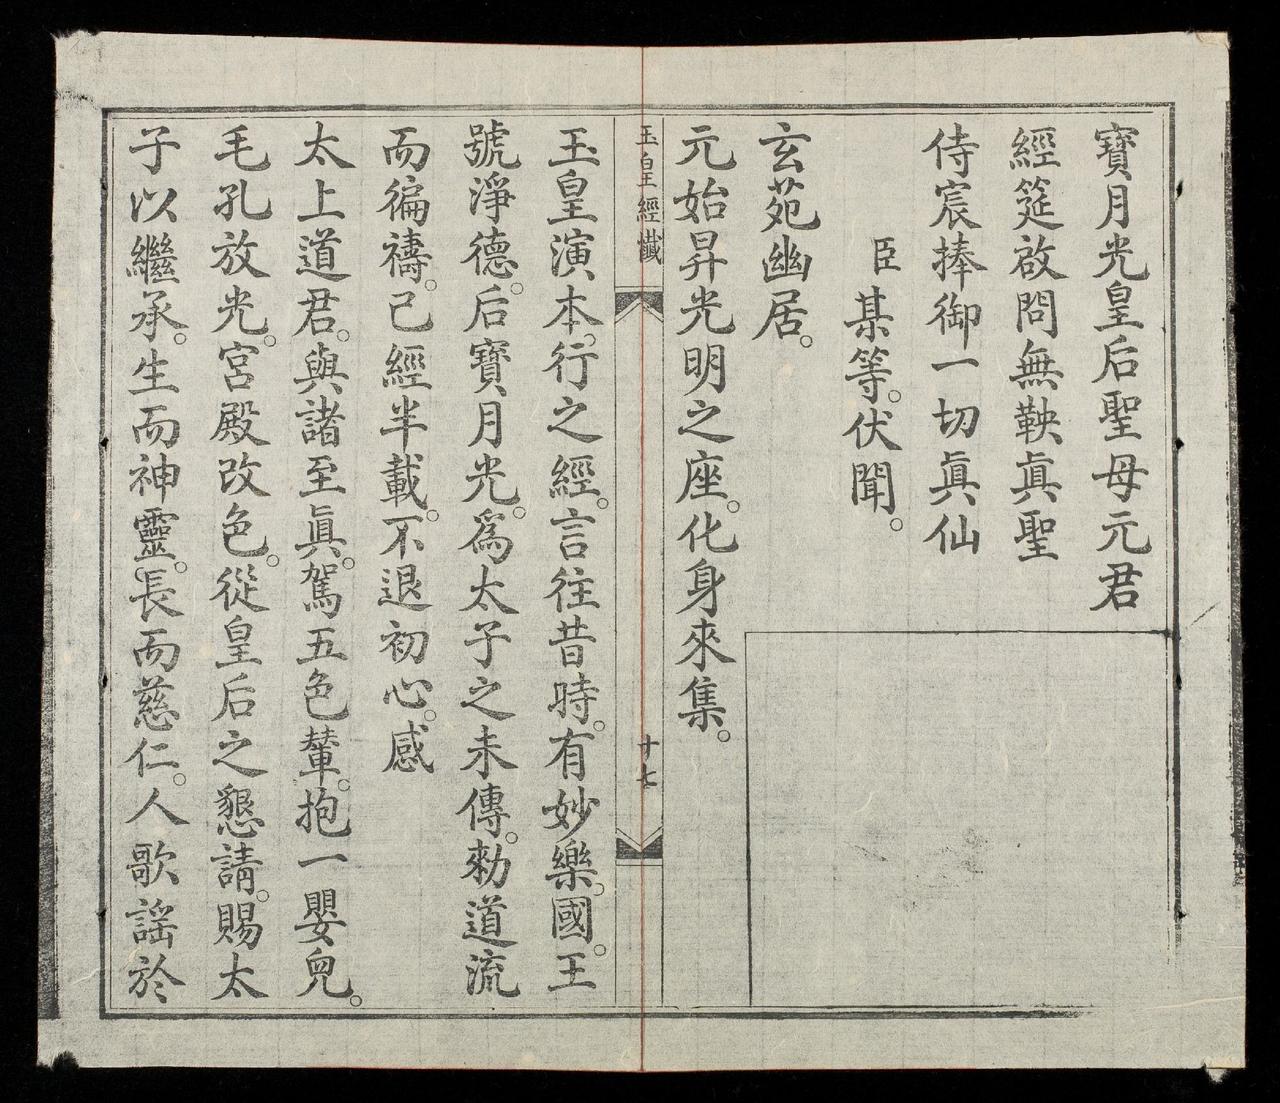 寶月光皇后聖母元君
經筵啟問無鞅眞聖
侍宸捧御一切眞仙
臣某等。伏聞。
玄苑幽居。
元始昇光明之座。化身來集。
玉皇經懺
十七
玉皇演本。行之經。言往昔時。有妙樂。國。王
號淨德。后寶月光。爲太子之未傳。勑道流
而徧禱。已經半載。不退初心。感
太上道君。與諸至眞。駕五色輦。抱一嬰兒。
毛孔放光。宮殿改色。從皇后之懇請。賜太
子以繼承。生而神靈。長而慈仁。人歌謠於